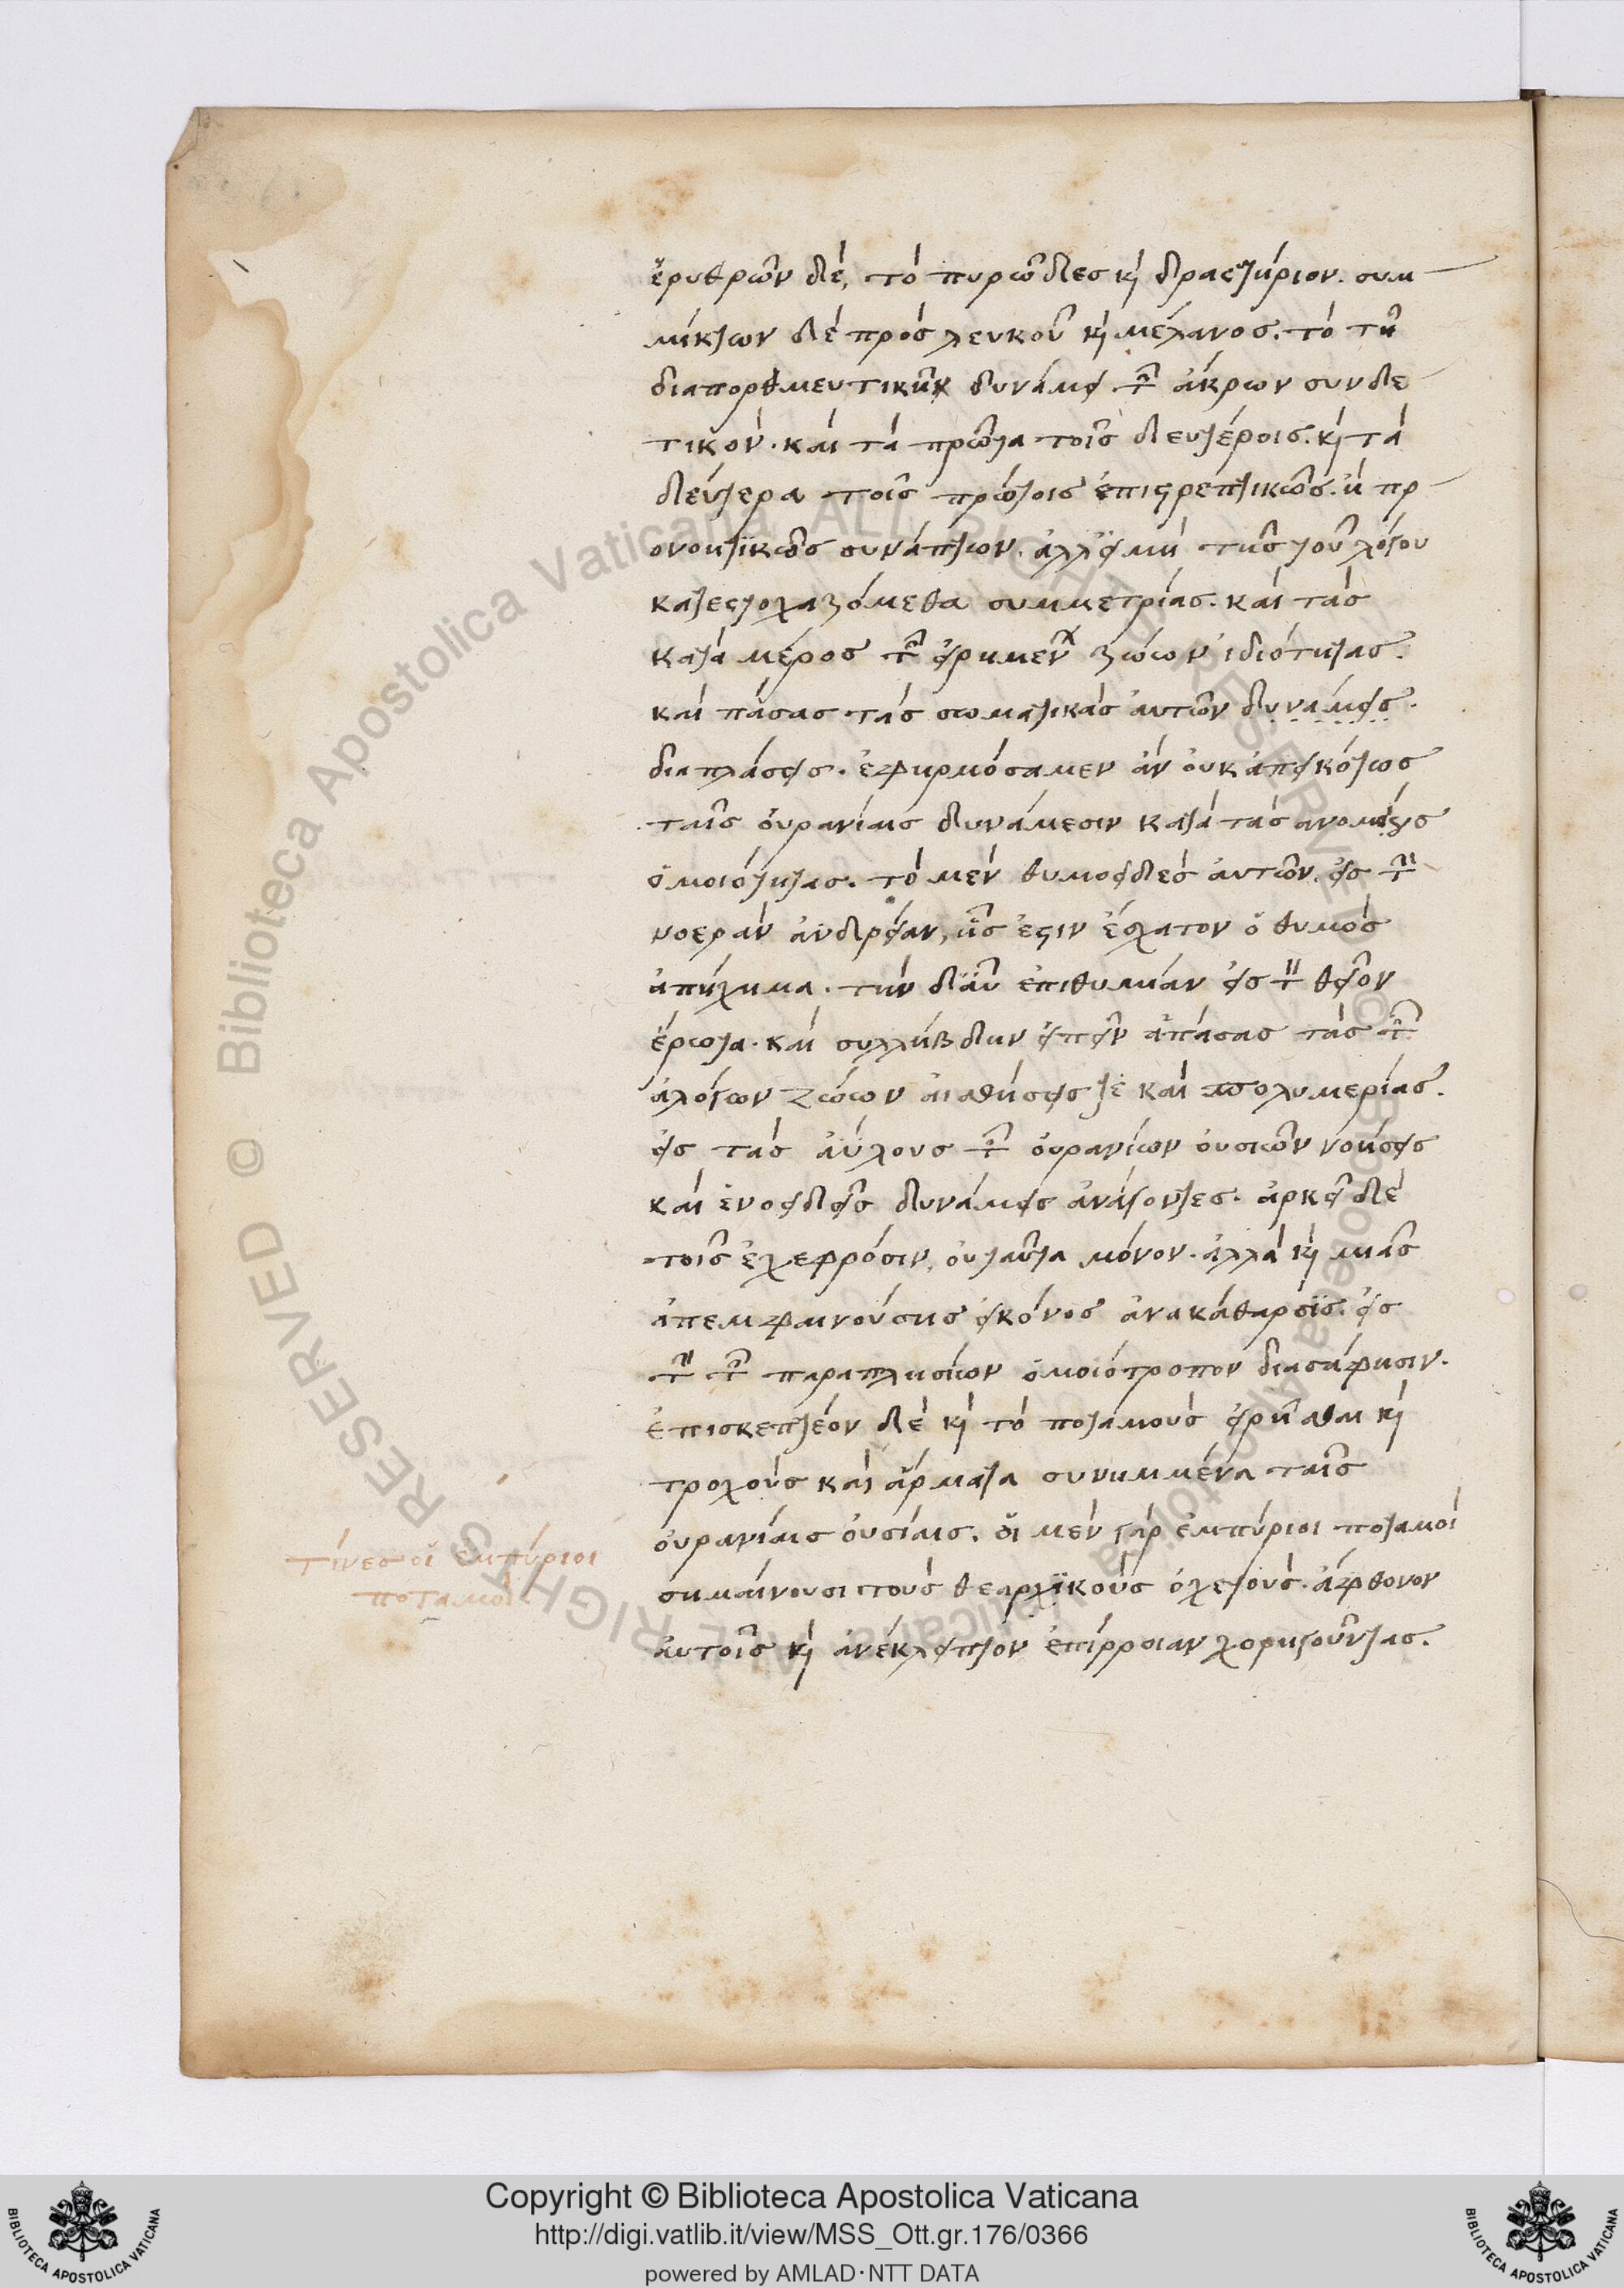 ἐρυθρῶν δὲ, τὸ πυρῶδες κὶ δραστήριον. συμ
μίκτων δὲ πρὸς λευκοῦ κὶ μέλανος. τὸ τῆ
διαπορθμευτικῆ δυνάμει τῶν ἄκρων συνδε
τικὸν. καὶ τὰ πρῶτα τοῖς δευτέροις. κὶ τὰ
δεύτερα τοῖς πρώτοις ἐπιστρεπτικῶς. ἢ πρ
ονοητϊκῶς συνάπτων. ἀλλεἰ μὴ τῆς τοῦ λόγου
κατεστοχαζόμεθα συμμετρίας. καὶ τὰς
κατὰ μέρος τῶν εἰρημένων ζώων ἰδιότητας.
καὶ πάσας τὰς σωματικὰς ἀυτῶν δυνάμεις.
διαπλάσεις. ἐφηρμόσαμεν ἂν ὀυκ ἀπεικότως
ταῖς ὀυρανίαις δυνάμεσιν κατὰ τὰς ἀνομοίους
ὁμοιότητας. τὸ μὲν θυμοειδὲς ἀυτῶν. εἰς τὴν
νοερὰν ἀνδρείαν, ἧς ἐστιν ἔσχατον ὁ θυμὸς
ἀπήχημα. τὴν δἂυ ἐπιθυμίαν εἰς τὴν θεῖον
ἔρωτα. καὶ συλλήβδην εἰπεῖν ἁπάσας τὰς τῶν
ἀλόγων ζώων αἰσθήσεις τὲ καὶ πολυμερίας.
εἰς τὰς ἀύλους τῶν ὀυρανίων ὀυσιῶν νοήσεις
καὶ ἑνοειδεῖς δυνάμεις ἀνάγοντες. ἀρκεῖ δὲ
τοῖς ἐχέφροσιν, ὀυταῦτα μόνον. ἀλλὰ κὶ μιᾶς
ἀπεμφαινούσης εἰκόνος ἀνακάθαρσϊς. εἰς
τὴν τῶν παραπλησίων ὁμοιότροπον διασάφησιν.
ἐπισκεπτέον δὲ κὶ τὸ ποταμοὺς εἰρῆσθαι κὶ
τροχοὺς καὶ ἅρματα συνημμένα ταῖς
ὀυρανίαις ὀυσίαις. ὃι μὲν γὰρ ἐμπύριοι ποταμοὶ
σημαίνουσι τοὺς θεαρχϊκοὺς ὀχετοὺς. ἄφθονον
ἀυτοῖς κὶ ἀνέκλειπτον ἐπίρροιαν χορηγοῦντας.
τίνες ὁι ἐμπύριοι
ποταμοὶ
Copyright © Biblioteca Apostolica Vaticana
http://digi.vatlib.it/view/MSS_Ott.gr.176/0366
powered by AMLAD·NTT DATA
BIBLIOTECA APOSTOLICA VATICANA
BIBLIOTECA APOSTOLICA VATICANA